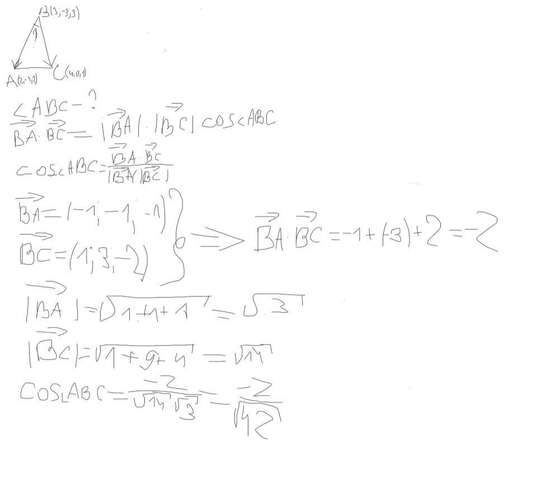 B(3,-3,3)
1
A
C
∠ABC-?
BA·BC=|BA|·|BC|cos∠ABC
cos∠ABC=BA·BC/|BA||BC|
BA=(-1;-1,-1)
BC=(1;3,-2)
=> BA·BC=-1+(-3)+2=-2
|BA|=√1+1+1=√3
|BC|=√1+9+4=√14
COS∠ABC=-2/√14√3=-2/√42